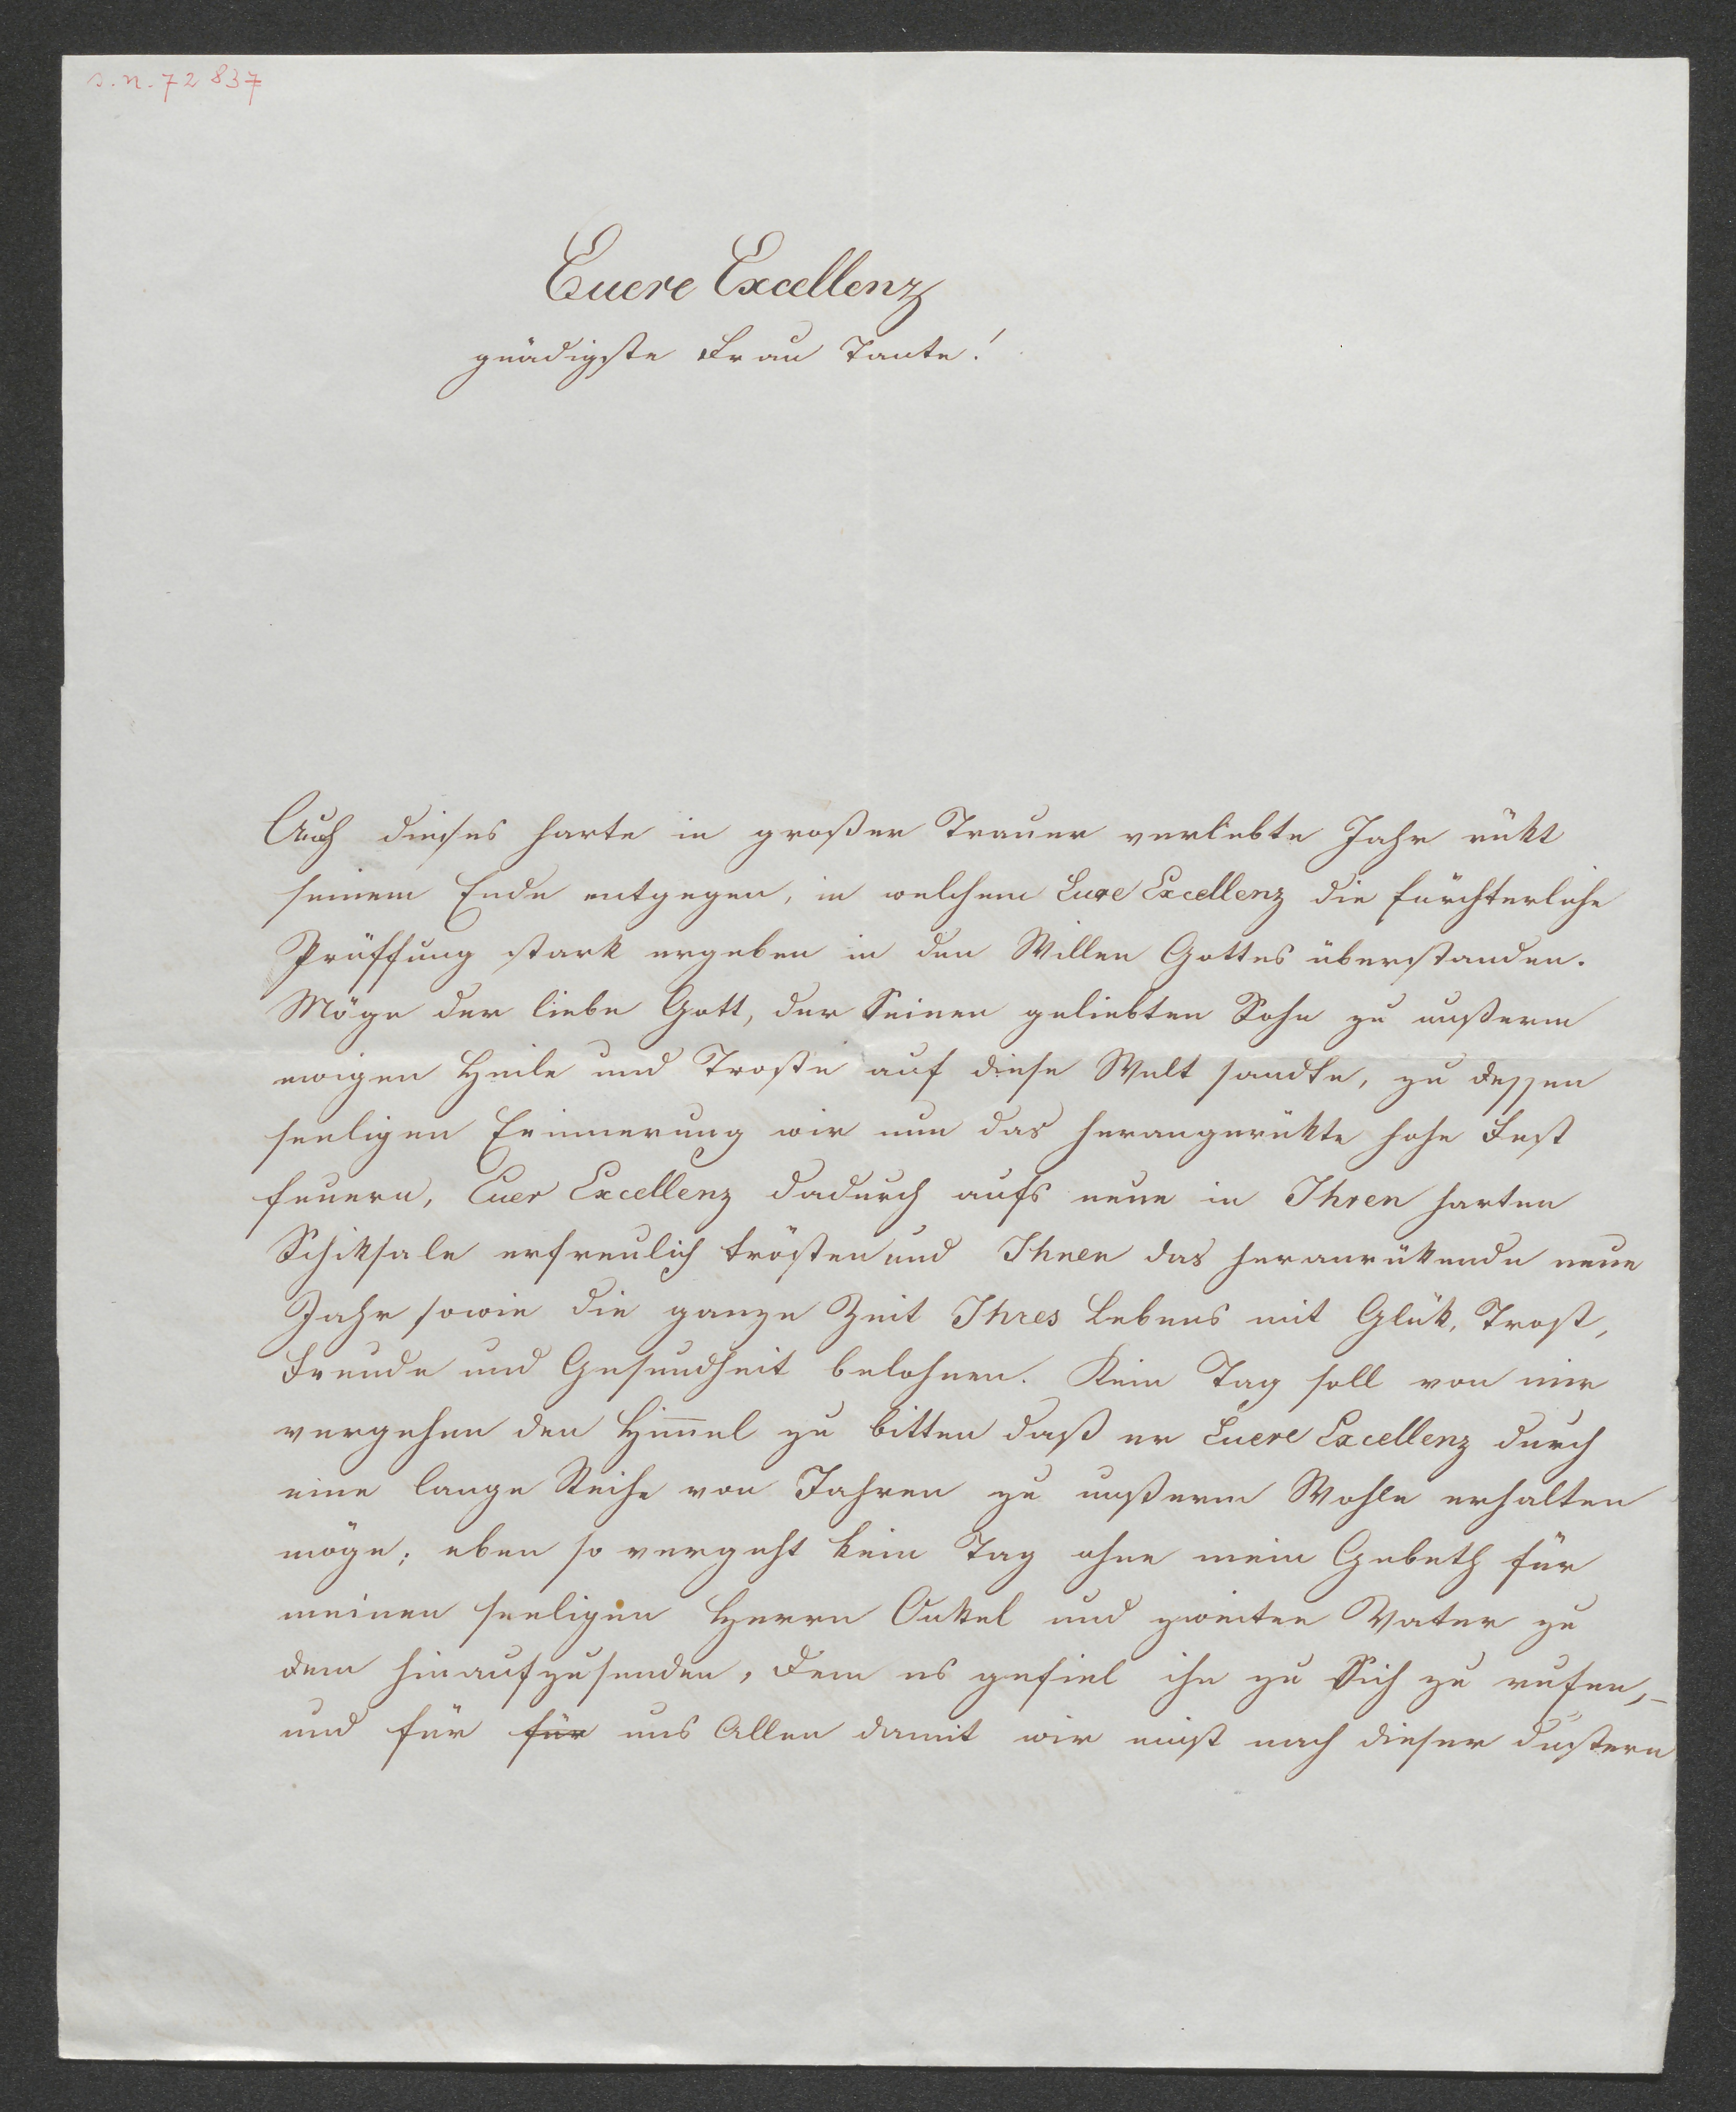 s. n. 72 837
Euere Excellenz
gnädigste Frau Tante!
Auch dieses harte in großer Trauer verlebte Jahr rükt
seinem Ende entgegen, in welchem Eure Excellenz die fürchterliche
Prüffung stark ergeben in den Willen Gottes überstanden.
Möge der liebe Gott, der Seinen geliebten Sohn zu unßerm
ewigen Heile und Troste auf diese Welt sandte, zu dessen
seeligen Erinnerung wir nun das herangerükte hohe Fest
feuern, Euer Excellenz dadurch aufs neue in Ihren harten
Schiksale erfreulich trösten und Ihnen das heranrükende neue
Jahr sowie die ganze Zeit Ihres Lebens mit Glük, Trost,
Freude und Gesundheit belohnen. Kein Tag soll von mir
vergehen den Him̄el zu bitten daß er Euere Excellenz durch
eine lange Reihe von Jahren zu unßerm Wohle erhalten
möge; eben so vergeht kein Tag ohne mein Gebeth für
meinen seeligen Herrn Onkel und zweiten Vater zu
dem hinaufzusenden, dem es gefiel ihn zu Sich zu rufen,_
und für für uns Allen damit wir einst nach dieser düstern